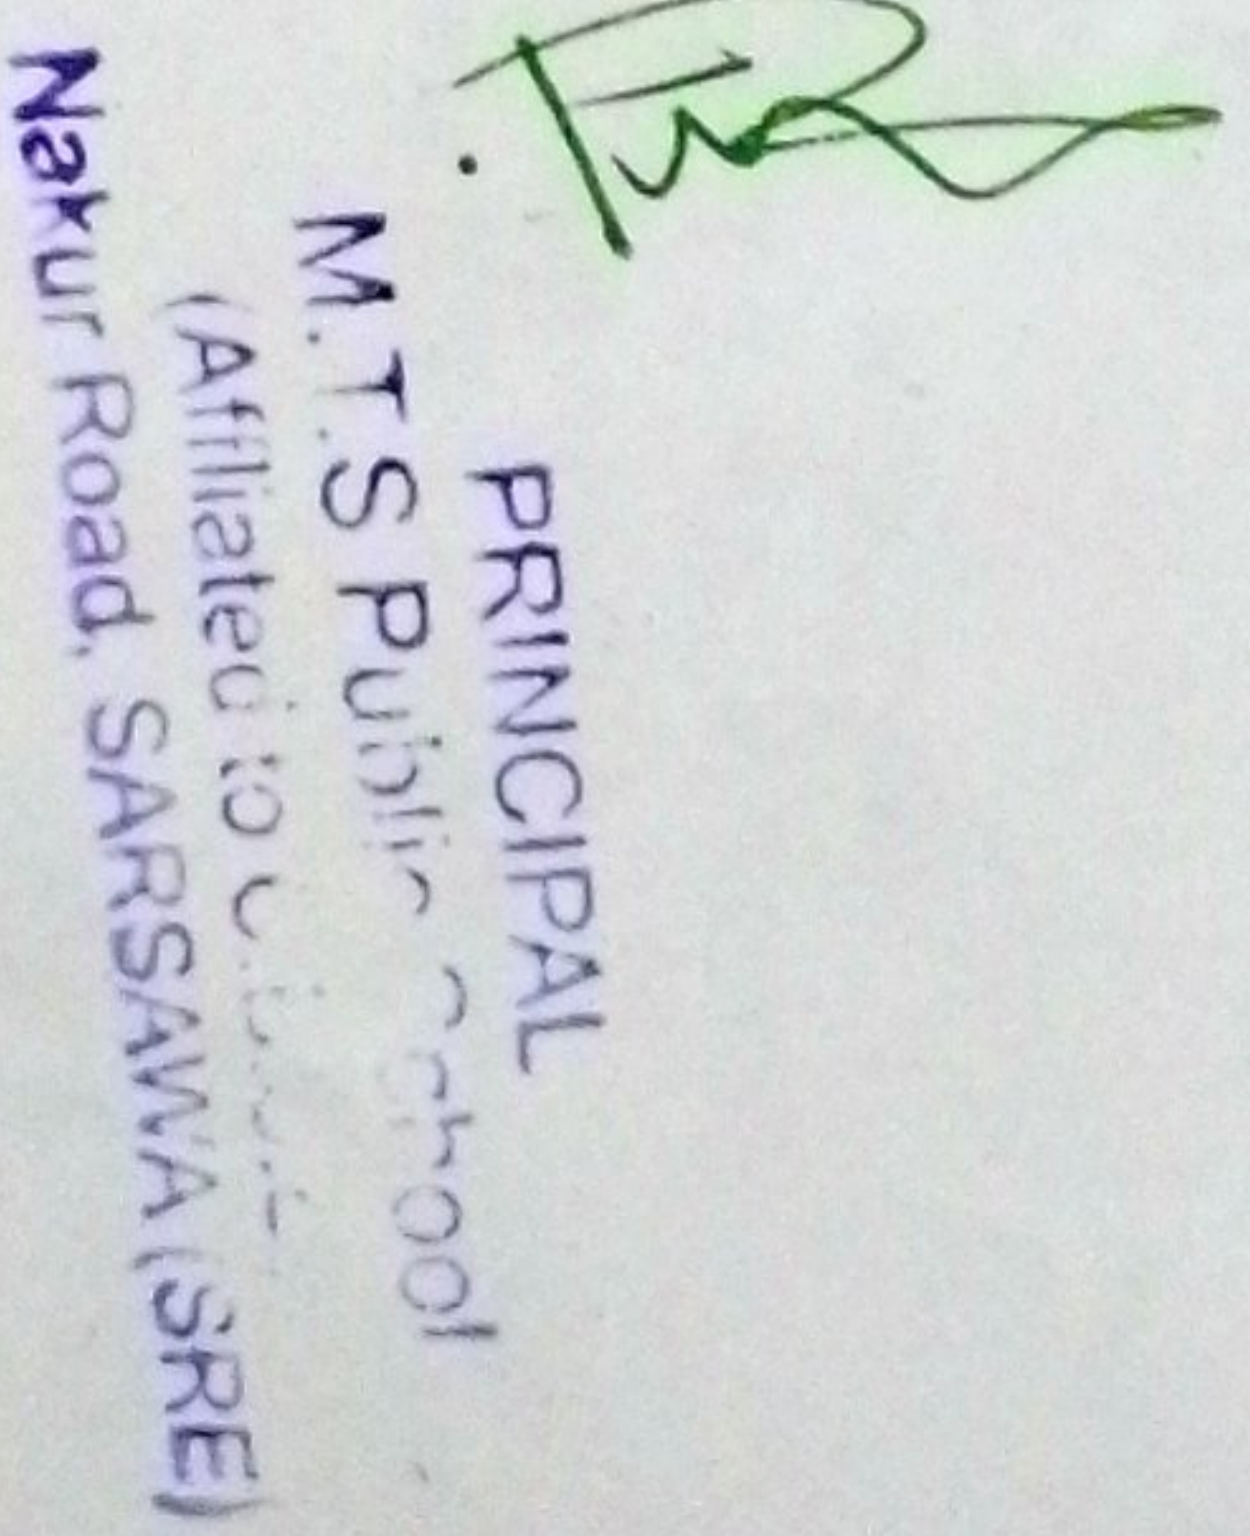 PRINCIPAL
M.T.S Public School
(Affiliated to
Nakur Road, SARSAWA (SRE)